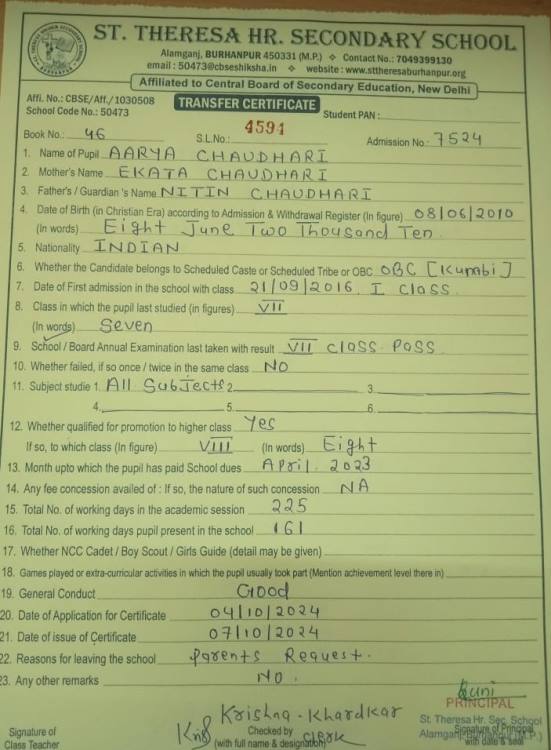 ST. THERESA HR. SECONDARY SCHOOL
Alamganj, BURHANPUR 450331 (M.P.) ❖ Contact No.: 7049399130
email : 50473@cbseshiksha.in ❖ website : www.sttheresaburhanpur.org
Affiliated to Central Board of Secondary Education, New Delhi
Affi. No.: CBSE/Aff./1030508
School Code No.: 50473
TRANSFER CERTIFICATE
Student PAN :
Book No.: 46 S.L.No.: 4594 Admission No.: 7524
1. Name of Pupil AARYA CHAUDHARI
2. Mother's Name EKATA CHAUDHARI
3. Father's / Guardian 's Name NITIN CHAUDHARI
4. Date of Birth (in Christian Era) according to Admission & Withdrawal Register (In figure) 08/06/2010
(In words) Eight June Two Thousand Ten
5. Nationality INDIAN
6. Whether the Candidate belongs to Scheduled Caste or Scheduled Tribe or OBC OBC [Kunabi]
7. Date of First admission in the school with class 21/09/2016 I Class
8. Class in which the pupil last studied (in figures) VII
(In words) Seven
9. School / Board Annual Examination last taken with result VII Class Pass
10. Whether failed, if so once / twice in the same class NO
11. Subject studie 1. All Subjects 2. 3.
4. 5. 6.
12. Whether qualified for promotion to higher class Yes
If so, to which class (In figure) VIII (In words) Eight
13. Month upto which the pupil has paid School dues April 2023
14. Any fee concession availed of : If so, the nature of such concession NA
15. Total No. of working days in the academic session 225
16. Total No. of working days pupil present in the school 161
17. Whether NCC Cadet / Boy Scout / Girls Guide (detail may be given)
18. Games played or extra-curricular activities in which the pupil usually took part (Mention achievement level there in)
19. General Conduct Good
20. Date of Application for Certificate 04/10/2024
21. Date of issue of Certificate 07/10/2024
22. Reasons for leaving the school Parents Request.
23. Any other remarks NO.
PRINCIPAL
St. Theresa Hr. Sec. School
Krishna Khardkar
Signature of
Class Teacher
Checked by
(with full name & designation) Clerk
Signature of Principal
with date & seal